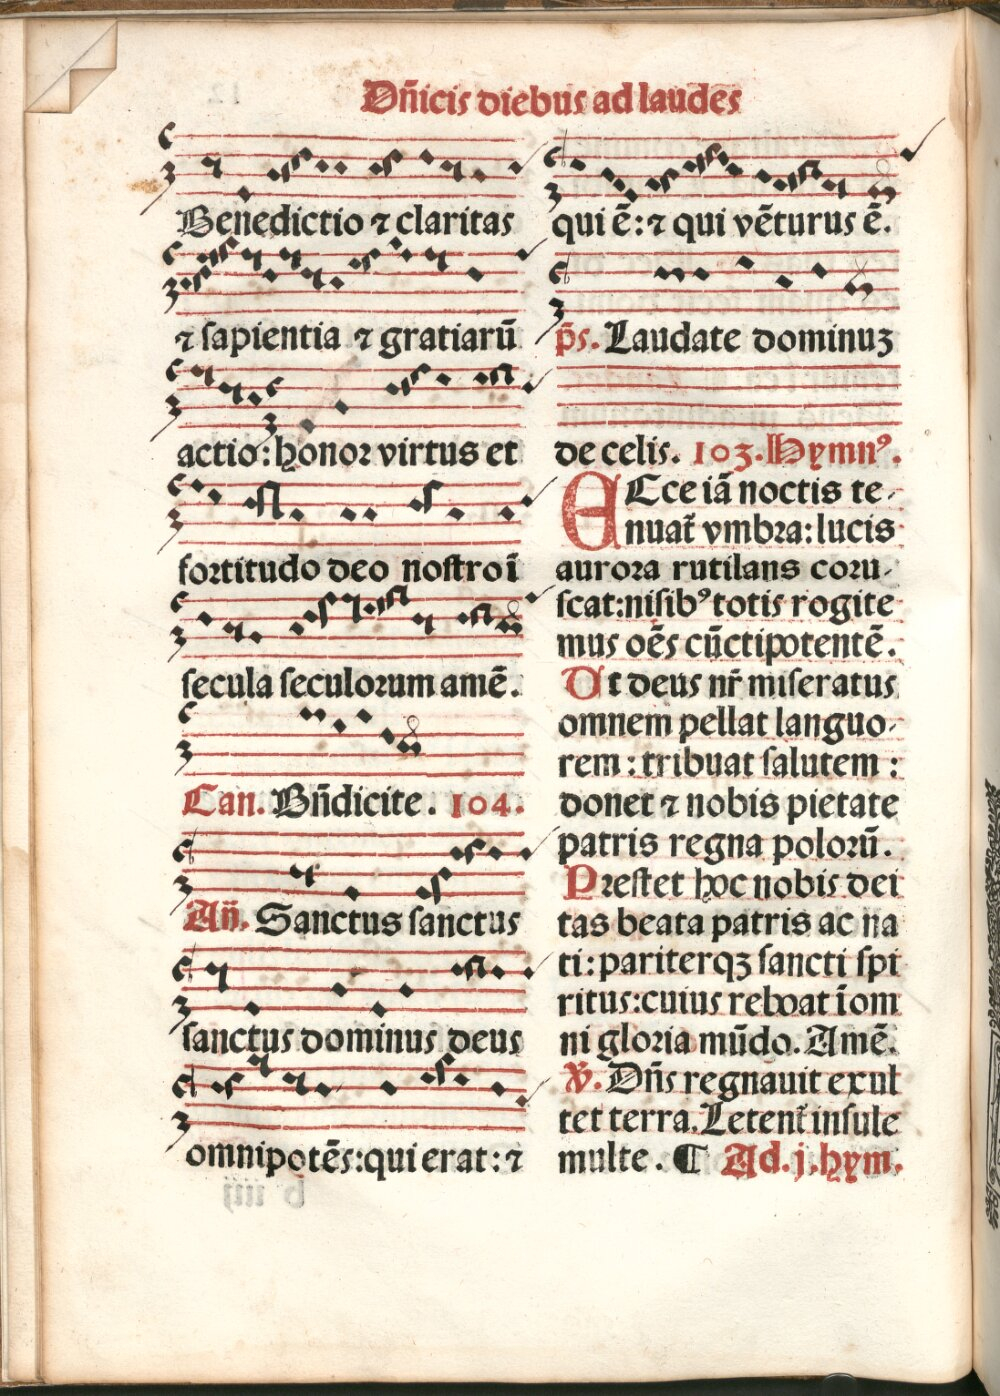 Dñicis diebus ad laudes
Benedictio ⁊ claritas
⁊ ſapientia ⁊ gratiarū
actio: honoꝛ virtus et
foꝛtitudo deo noſtro ī
ſecula ſeculoꝛum amē.
Can. Bñdicite. 104.
Añ. Sanctus ſanctus
ſanctus dominus deus
omnipotēs: qui erat: ⁊
qui ē: ⁊ qui vēturus ē.
p̄s. Laudate dominuꝫ
de celis. 103. Hymnꝰ.
ECce iā noctis te⸗
nuat̄ vmbꝛa: lucis
auroꝛa rutilans coꝛu⸗
ſcat: niſibꝰ totis rogite
mus oēs cūctipotentē.
Ut deus nr̄ miſeratus
omnem pellat languo⸗
rem: tribuat ſalutem:
donet ⁊ nobis pietate
patris regna poloꝛū.
Pꝛeſtet hoc nobis dei
tas beata patris ac na
ti: pariterqꝫ ſancti ſpi
ritus: cuius reboat ī om
ni gloꝛia mūdo. Amē.
℣. Dñs regnauit exul
tet terra. Letent̄ inſule
multe. ¶ Ad .j. hym.
b iiij
12